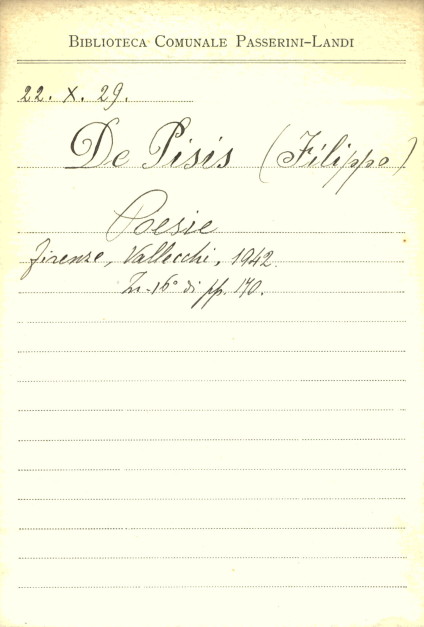 BIBLIOTECA COMUNALE PASSERINI-LANDI
22. X. 29.
De Pisis (Filippo)
Poesie
Firenze, Vallecchi, 1942.
In-16° di pp. 170.